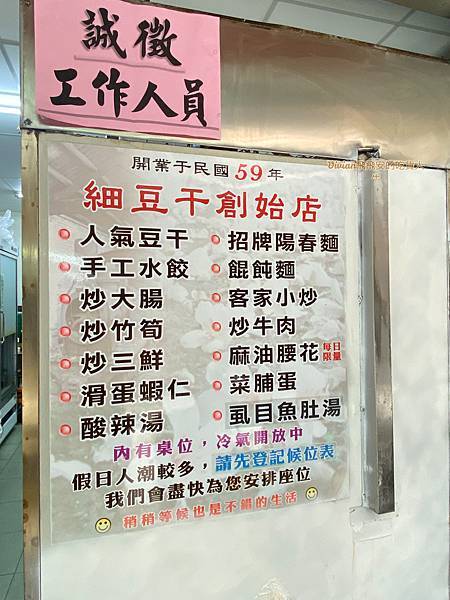 誠徵
工作人員
開業于民國59年
細豆干創始店
人氣豆干
手工水餃
炒大腸
炒竹筍
炒三鮮
滑蛋蝦仁
酸辣湯
招牌陽春麵
餛飩麵
客家小炒
炒牛肉
麻油腰花 每日限量
菜脯蛋
虱目魚肚湯
內有桌位，冷氣開放中
假日人潮較多，請先登記候位表
我們會盡快為您安排座位
稍稍等候也是不錯的生活